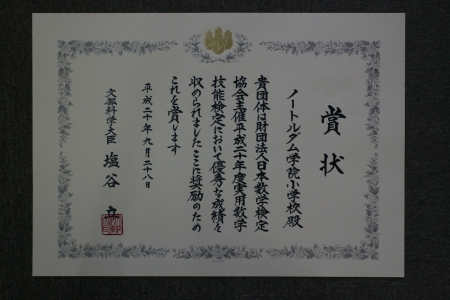 賞状
ノートルダム学院小学校殿
貴団体は財団法人日本数学検定
協会主催平成二十年度実用数学
技能検定において優秀な成績を
収められましたここに奨励のため
これを賞します
平成二十年九月二十八日
文部科学大臣 塩谷 立